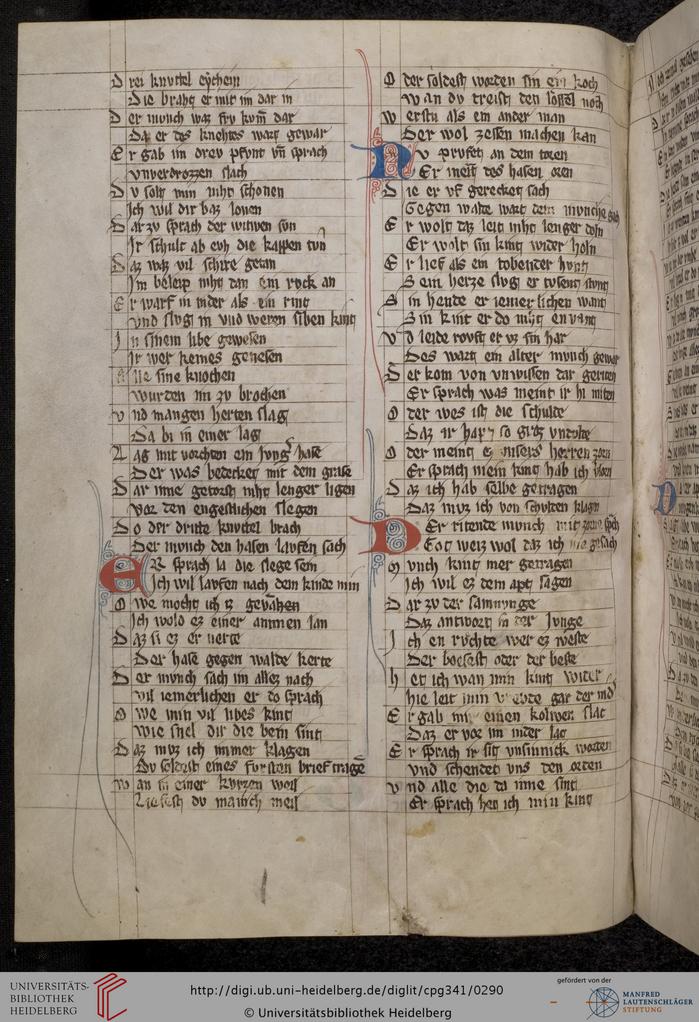 Drei knuttel eychein
Die braht er mit im dar in
Der munch waz fru kum dar
Da er des knehtes wart gewar
Er gab im drev pfunt vn sprach
vnverdrozzen slach
Dv solt min niht schonen
Ich wil dir baz lonen
Dar zv sprach der witwen svn
Ir schult ab evh die kappen tvn
Daz waz vil schire getan
Im beleip niht dan ein rock an
Er warf in nider als ein rint
vnd slvg in vnd weren siben kint
In sinem libe gewesen
Ir wer keines genesen
Alle sine knochen
wurden im zv brochen
vnd mangen herten slag
Da bi in einer lag
Lag mit vorchten ein Jvng hase
Der was bedecket mit dem grase
Dar inne getorst niht lenger ligen
vor den engestlichen slegen
Do der dritte knvttel brach
Der mvnch den hasen lavfen sach
ER sprach la die slege sein
Ich wil lavfen nach dem kinde min
Owe moht ich iz gevahen
Ich wold ez einer ammen lan
Daz si ez er nerte
Der hase gegen walde kerte
Der mvnch sach im allez nach
vil iemerlichen er do sprach
Owe min vil libes kint
wie snel dir die bein sint
Daz mvz ich immer klagen
Dv soldest eines fvrsten brief trage
wan in einer kvrzen weil
Liefest dv manich meil
Oder soldest worden sin ein koch
wan dv treist den loffel noch
werstv als ein ander man
Der wol zessen machen kan
Nv prvfet an dem toren
Er meit des hasen oren
Die er vf gerecket sach
Gegen walde wart dem mvnche gach
Er wolt daz leit niht lenger doln
Er wolt sin kint wider holn
Er lief als ein tobender hvnt
Sein herze slvg er tvsent stvnt
Sin hende er iemerlichen want
Sin kint er do niht envant
vo leide rovft er vz sin har
Des wart ein alter mvnch gewar
Der kom von vnwissen dar geriten
Er sprach was meint ir hi miten
Oder wes ist die schulde
Daz ir habt so groz vntvlde
Oder meint ez vnsers herren zorn
Er sprach mein kint hab ich vlorn
Daz ich hab selbe getragen
Daz mvz ich von schvlden klagen
DEr ritende mvnch mit zorne spch
Got weiz wol daz ich nie gesach
Mvnch kint mer getragen
Ich wil ez dem apt sagen
Dar zv der samnvnge
Daz antwort in der Jvnge
Ich en rvchte wer ez weste
Der boesest oder der beste
het ich wan min kint wider
hie leit min vrevde gar der nid
Er gab mir einen kolwen slac
Daz er vor im nider lac
Er sprach ir sit vnsinnick worden
vnd schendet vns den orden
vnd alle die da inne sint
Er sprach het ich min kint
UNIVERSITÄTS-
BIBLIOTHEK
HEIDELBERG
http://digi.ub.uni-heidelberg.de/diglit/cpg341/0290
© Universitätsbibliothek Heidelberg
gefördert von der
MANFRED
LAUTENSCHLÄGER
STIFTUNG